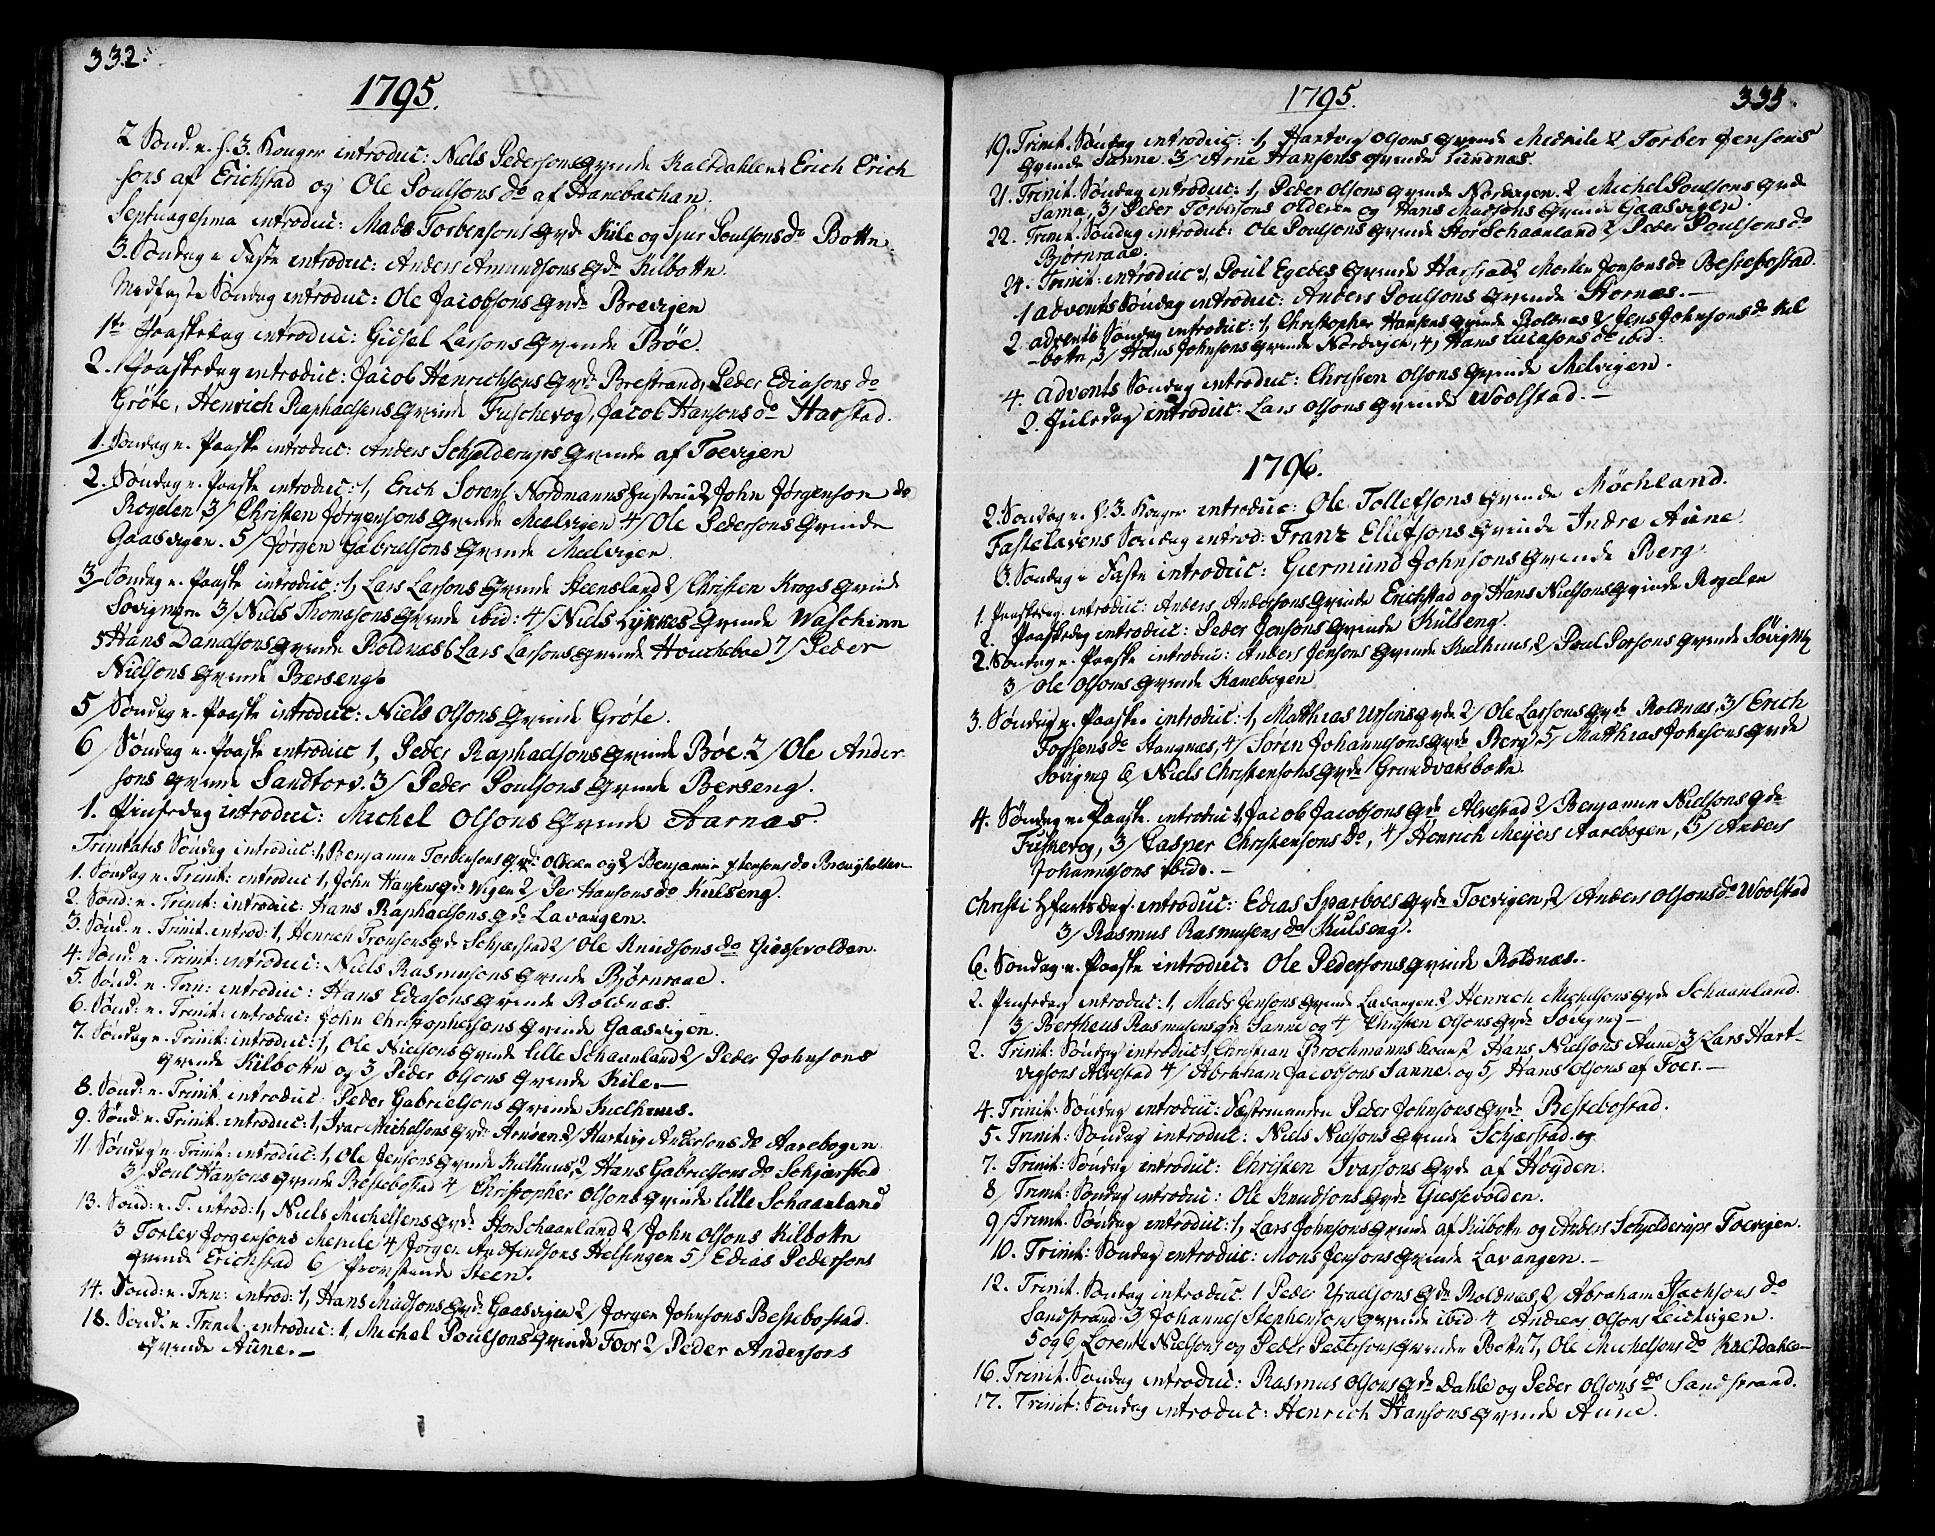 332.
1795.
2 Sønd. e. h. 3. Konger introduc: Niels Pedersons Qvinde Kaltdahlen, Erich Erich
sons af Erichstad og Ole Poulsons do af Hanebachan.
Septuagesima introduc: Mads Torbensons Qvd. Kile og Sjur Poulsons do Botten.
3. Søndag i Faste introduc: Anders Amundsons Qde Kilbotn.
Medfaste Søndag introduc: Ole Jacobsons Qvde Brevigen
1te Paaskedag introduc: Gidsel Larsons Qvinde Bøe.
2. Paaskedag introduc: Jacob Henrichsons Qvde Brestrand, Peder Ediasons do
Grøte, Henrich Raphaelsens Qvinde Fuschevog, Jacob Hansons do Harstad.
1. Søndag e. Paaske introduc: Anders Schjelderups Qvinde af Toevigen
2. Søndag e. Paaske introduc: 1, Erich Sørens. Nordmanns Hustrue 2 John Jørgenson do
Rogelen 3/ Christen Jørgensons Qvinde Melvigen 4/ Ole Pedersons Qvinde
Gaasvigen. 5/ Jørgen Gabrielsons Qvinde Melvigen.
3 Søndag e. Paaske introduc: 1, Lars Larsons Qvinde Steensland 2/ Christen Krogs Qvind
Søvigmoen 3/ Niels Thomasons Qvinde ibid: 4/ Niels Lykkes Qvinde Waschinn
5 Hans Danelsons Qvinde Roldnæs 6 Lars Larsons Qvinde Houcheboe 7/ Peder
Nielsons Qvinde Berseng.
5/ Søndag e. Paaske introduc: Niels Olsons Qvinde Grøte.
6/ Søndag e. Paaske introduc 1, Peder Raphaelsons Qvinde Bøe. 2/ Ole Ander-
sons Qvinde Sandtorv. 3/ Peder Poulsons Qvinde Berseng.
1. Pinsedag introduc: Michel Olsons Qvinde Aarnæs
Trinitatis Søndag introduc: 1, Benjamin Torbensons Qvde Olderen og 2/ Benjamin Estensons do Breigholten
1. Søndag e. Trinit: introduc 1, John Hansens Qde Vigen 2/ Per Hansons do Kulseng.
2. Sønd: e. Trinit: introduc: Hans Raphaelsons Qde Lavangen.
3. Sønd. e. Trinit. introd: 1, Henrich Tronsens Qde Schjærstad 2/ Ole Knudsons do Giessevolden.
4. Sønd. e. Trinit: introduc: Niels Rasmusons Qvinde Bjørnraae.
5. Sønd. e. Trin: introduc: Hans Ediasons Qvinde Roldnæs.
6. Sønd: e. Trinit: introduc: John Christophersons Qvinde Gaasvigen.
7. Søndag e. Trinit: introduc: 1, Ole Nielsons Qvinde lille Schaanland 2/ Peder Johnsons
Qvinde Kilbotn og 3/ Peder Olsons Qvinde Kile.—
8. Sønd: e. Trinit. introduc: Peder Gabrielsons Qvinde Kielhuus.
9. Sønd. e. Trinit. introduc: 1, Ivar Michelsons Qvde Arnøen 2/ Hartvig Andersons do Aarebogen.
11. Søndag e. Trinit: introduc: 1, Ole Jensons Qvinde Kielhuus, 2 Hans Gabrielsons do Schjærstad
3/ Poul Hansons Qvinde Bessebostad 4/ Christopher Olsons Qvinde lille Schaanland
13. Sønd: e. T. introd: 1, Niels Michelsens Qvde Stor Schaanland 2/ John Olsons Kilbotn
3 Torlev Jorgensons Merile 4/ Jorgen Andfindsons Helsingen 5/ Edias Pedersons
Qvinde Erichstad 6/ Provstinde Steen.
14. Sønd: e. Trin: introd: 1, Hans Madsons Qvde Gaasvigen 2/ Jorgen Johnsons Bessebostad.
18. Sønd. e. Trinit. introduc: 1, Michel Poulsons Qvinde Foor 2/ Peder Andersons
Qvinde Aune.—
1795.
333.
19. Trinit. Søndag introduc: 1, Hartvig Olsons Qvinde Medkile 2 Torber Jensons
Qvinde Sanne. 3/ Arne Hansens Qvinde Lundnæs.
21. Trinit. Søndag introduc: 1, Peder Olsons Qvinde Nordvigen. 2 Michel Poulsons Qvde
Sama, 3/ Peder Torbersons Olderen og Hans Madsons Qvinde Gaasvigen.
22. Trinit. Søndag introduc: Ole Poulsons Qvinde Stor Schaanland 2/ Peder Poulsons do
Bjørnraae.
24. Trinit: introduc: 1, Poul Egebes Qvinde Harstad 2 Morten Jonsons do Bessebostad.
1 Advents Søndag introduc: Anders Poulsons Qvinde Stornæs.—
2. Advents Søndag introduc: 1, Christopher Hansens Qvinde Roldnæs 2/ Jens Johnsons do Kil
-botn, 3/ Hans Johnsons Qvinde Nordvigen, 4, Hans Lucasons do ibid:
4. Advents Søndag introduc: Christen Olsons Qvinde Melvigen.
2. Juledag introduc: Lars Olsons Qvinde Woolstad.—
1796.
2. Søndag e. h. 3. Konger introduc: Ole Tollefsons Qvinde Møchland.
Fastelavens Søndag introd: Franz Ellefsons Qvinde Indre Aune.
3. Søndag i Faste introduc: Giermund Johnsons Qvinde Berg.
1. Paaskedag introduc: Anders Andersons Qvinde Erichstad og Hans Nielsons Qvinde Rogelen
2. Paaskedag introduc: Peder Jonsons Qvinde Kulseng.
2. Søndag e. Paaske introduc: Anders Jensons Qvinde Kielhuus, 2/ Poul Persons Qvinde Søvigmo
3/ Ole Olsons Qvinde Kanebogen
3. Søndag e. Paaske introduc: 1, Matthias Ursins Qvde 2/ Ole Larsons Qvde Roldnæs, 3/ Erich
Torsens do Stangnæs, 4/ Søren Johannesons Qvde Berg 5/ Matthias Johnsons Qvde
Søvigmo 6/ Niels Christensons Qvde Grundvatsbotn.
4. Søndag e. Paaske. introduc 1, Jacob Jacobsons Qde Alvestad 2/ Benjamin Nielsons Qde
Fuskevog, 3/ Casper Christensons do, 4/ Henrich Meyers Aarebogen, 5/ Anders
Johannesons ibid.—
Christi Hfarts Dag introduc: Edias Sparboes Qvde Toevigen, 2/ Anders Olsons do Woolstad
3/ Rasmus Rasmusens do Kulseng.
6. Søndag e. Paaske introduc: Ole Pedersons Qvinde Roldnæs.
2. Pinsedag introduc: 1, Mads Jensons Qvinde Lavangen 2 Henrich Michelsons Qvde Schaanland.
3/ Bertheus Rasmusens Qde Sanne og 4/ Christen Olsons Qvde Søvigmo—
2. Trinit: Søndag introduc: 1, Christian Brochmanns Kone 2 Hans Nielsons Aune, 3 Lars Hart-
vigsons Alvestad 4/ Abraham Jacobsons Sanne og 5/ Hans Olsons af Foer.—
4. Trinit: Søndag introduc: Næstemanden Peder Johnsons Qvde Bessebostad.
5. Trinit: Søndag introduc: Niels Nielsons Qvinde Schjærstad. og
7. Trinit: Søndag introduc: Christen Ivarsons Qvde af Høyden.
8/ Trinit: Søndag introduc: Ole Knudsons Qvde Giessevolden.
9/ Trinit: Søndag introduc: 1, Lars Johnsons Qvinde af Kilbotn og Anders Schjelderups Toevigen.
10. Trinit: Søndag introduc: Mons Jensons Qvinde Lavangen.—
12. Trinit. Søndag introduc. 1 Peder Yraelsons Qde Roldnæs, 2/ Abraham Isachsons do
Sandstrand 3 Johannes Stephensons Qvinde ibid 4 Anders Olsons Leichvigen.
5 og 6/ Lorentz Nielsons og Peder Pedersons Qvinder Botn 7, Ole Michelsons do Kaltdahlen
16. Trinit. Søndag introduc: Rasmus Olsons Qde Dahle og Peder Olsons do Sandstrand.
17. Trinit: Søndag introduc: Henrich Hansons Qvinde Aune.